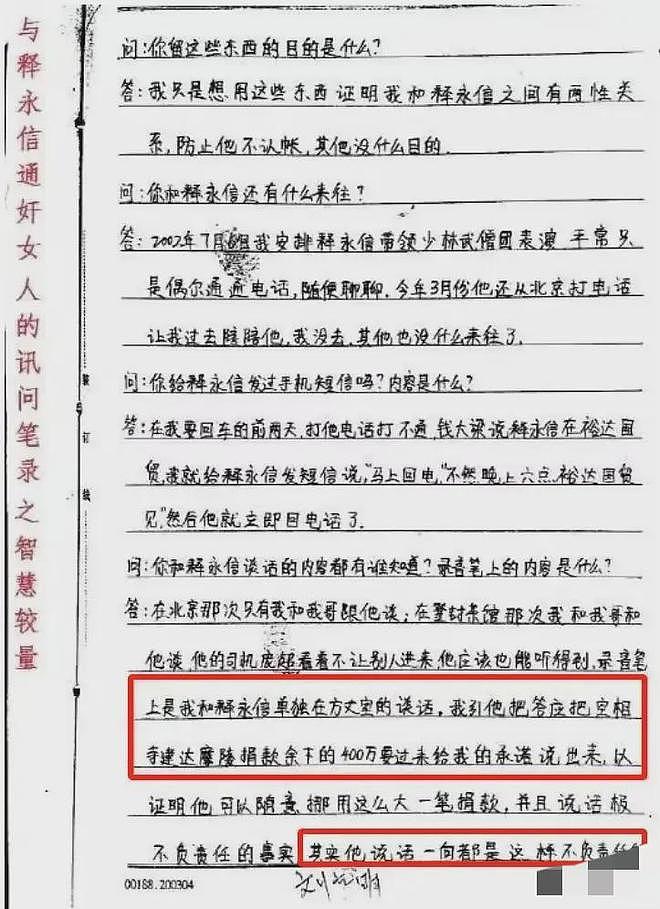 与释永信通奸女人的讯问笔录之智慧较量
问:你留这些东西的目的是什么?
答:我只是想用这些东西证明我和释永信之间有两性关
系,防止他不认帐,其他没什么目的.
问:你和释永信还有什么来往?
答:2002年7月 我安排释永信带领少林武僧团表演 平常只
是偶尔通通电话,随便聊聊.今年3月份他还从北京打电话
让我过去陪陪他,我没去,其他也没什么来往了.
问:你给释永信发过手机短信吗?内容是什么?
答:在我要回车的前两天,打他电话打不通,钱大梁说释永信在裕达国
贸,我就给释永信发短信说,"马上回电,"不然晚上六点.裕达国贸
见,"然后他就立即回电话了.
问:你和释永信谈话的内容都有谁知道?录音笔上的内容是什么?
答:在北京那次只有我和我哥跟他谈;在登封 馆那次我和我哥和
他谈,他的司机 看着不让别人进来,他应该也能听得到,录音笔
上是我和释永信单独在方丈室的谈话,我引他把答应把空相
寺建达摩陵捐款余下的400万要过来给我的承诺说出来,以
证明他可以随意挪用这么大一笔捐款,并且说话极
不负责任的事实 其实他说话一向都是这样不负责任
装
订
线
00188.200304